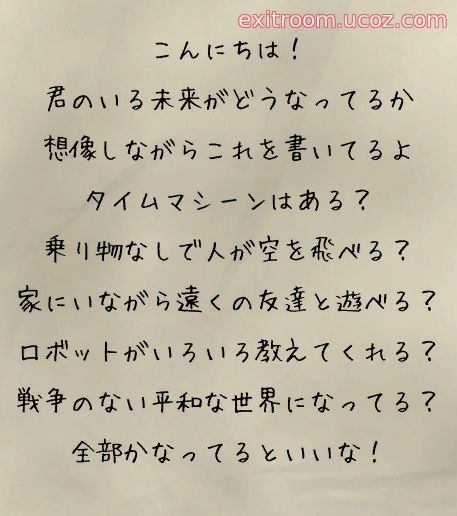 exitroom.ucoz.com
こんにちは！
君のいる未来がどうなってるか
想像しながらこれを書いてるよ
タイムマシーンはある？
乗り物なしで人が空を飛べる？
家にいながら遠くの友達と遊べる？
ロボットがいろいろ教えてくれる？
戦争のない平和な世界になってる？
全部かなってるといいな！